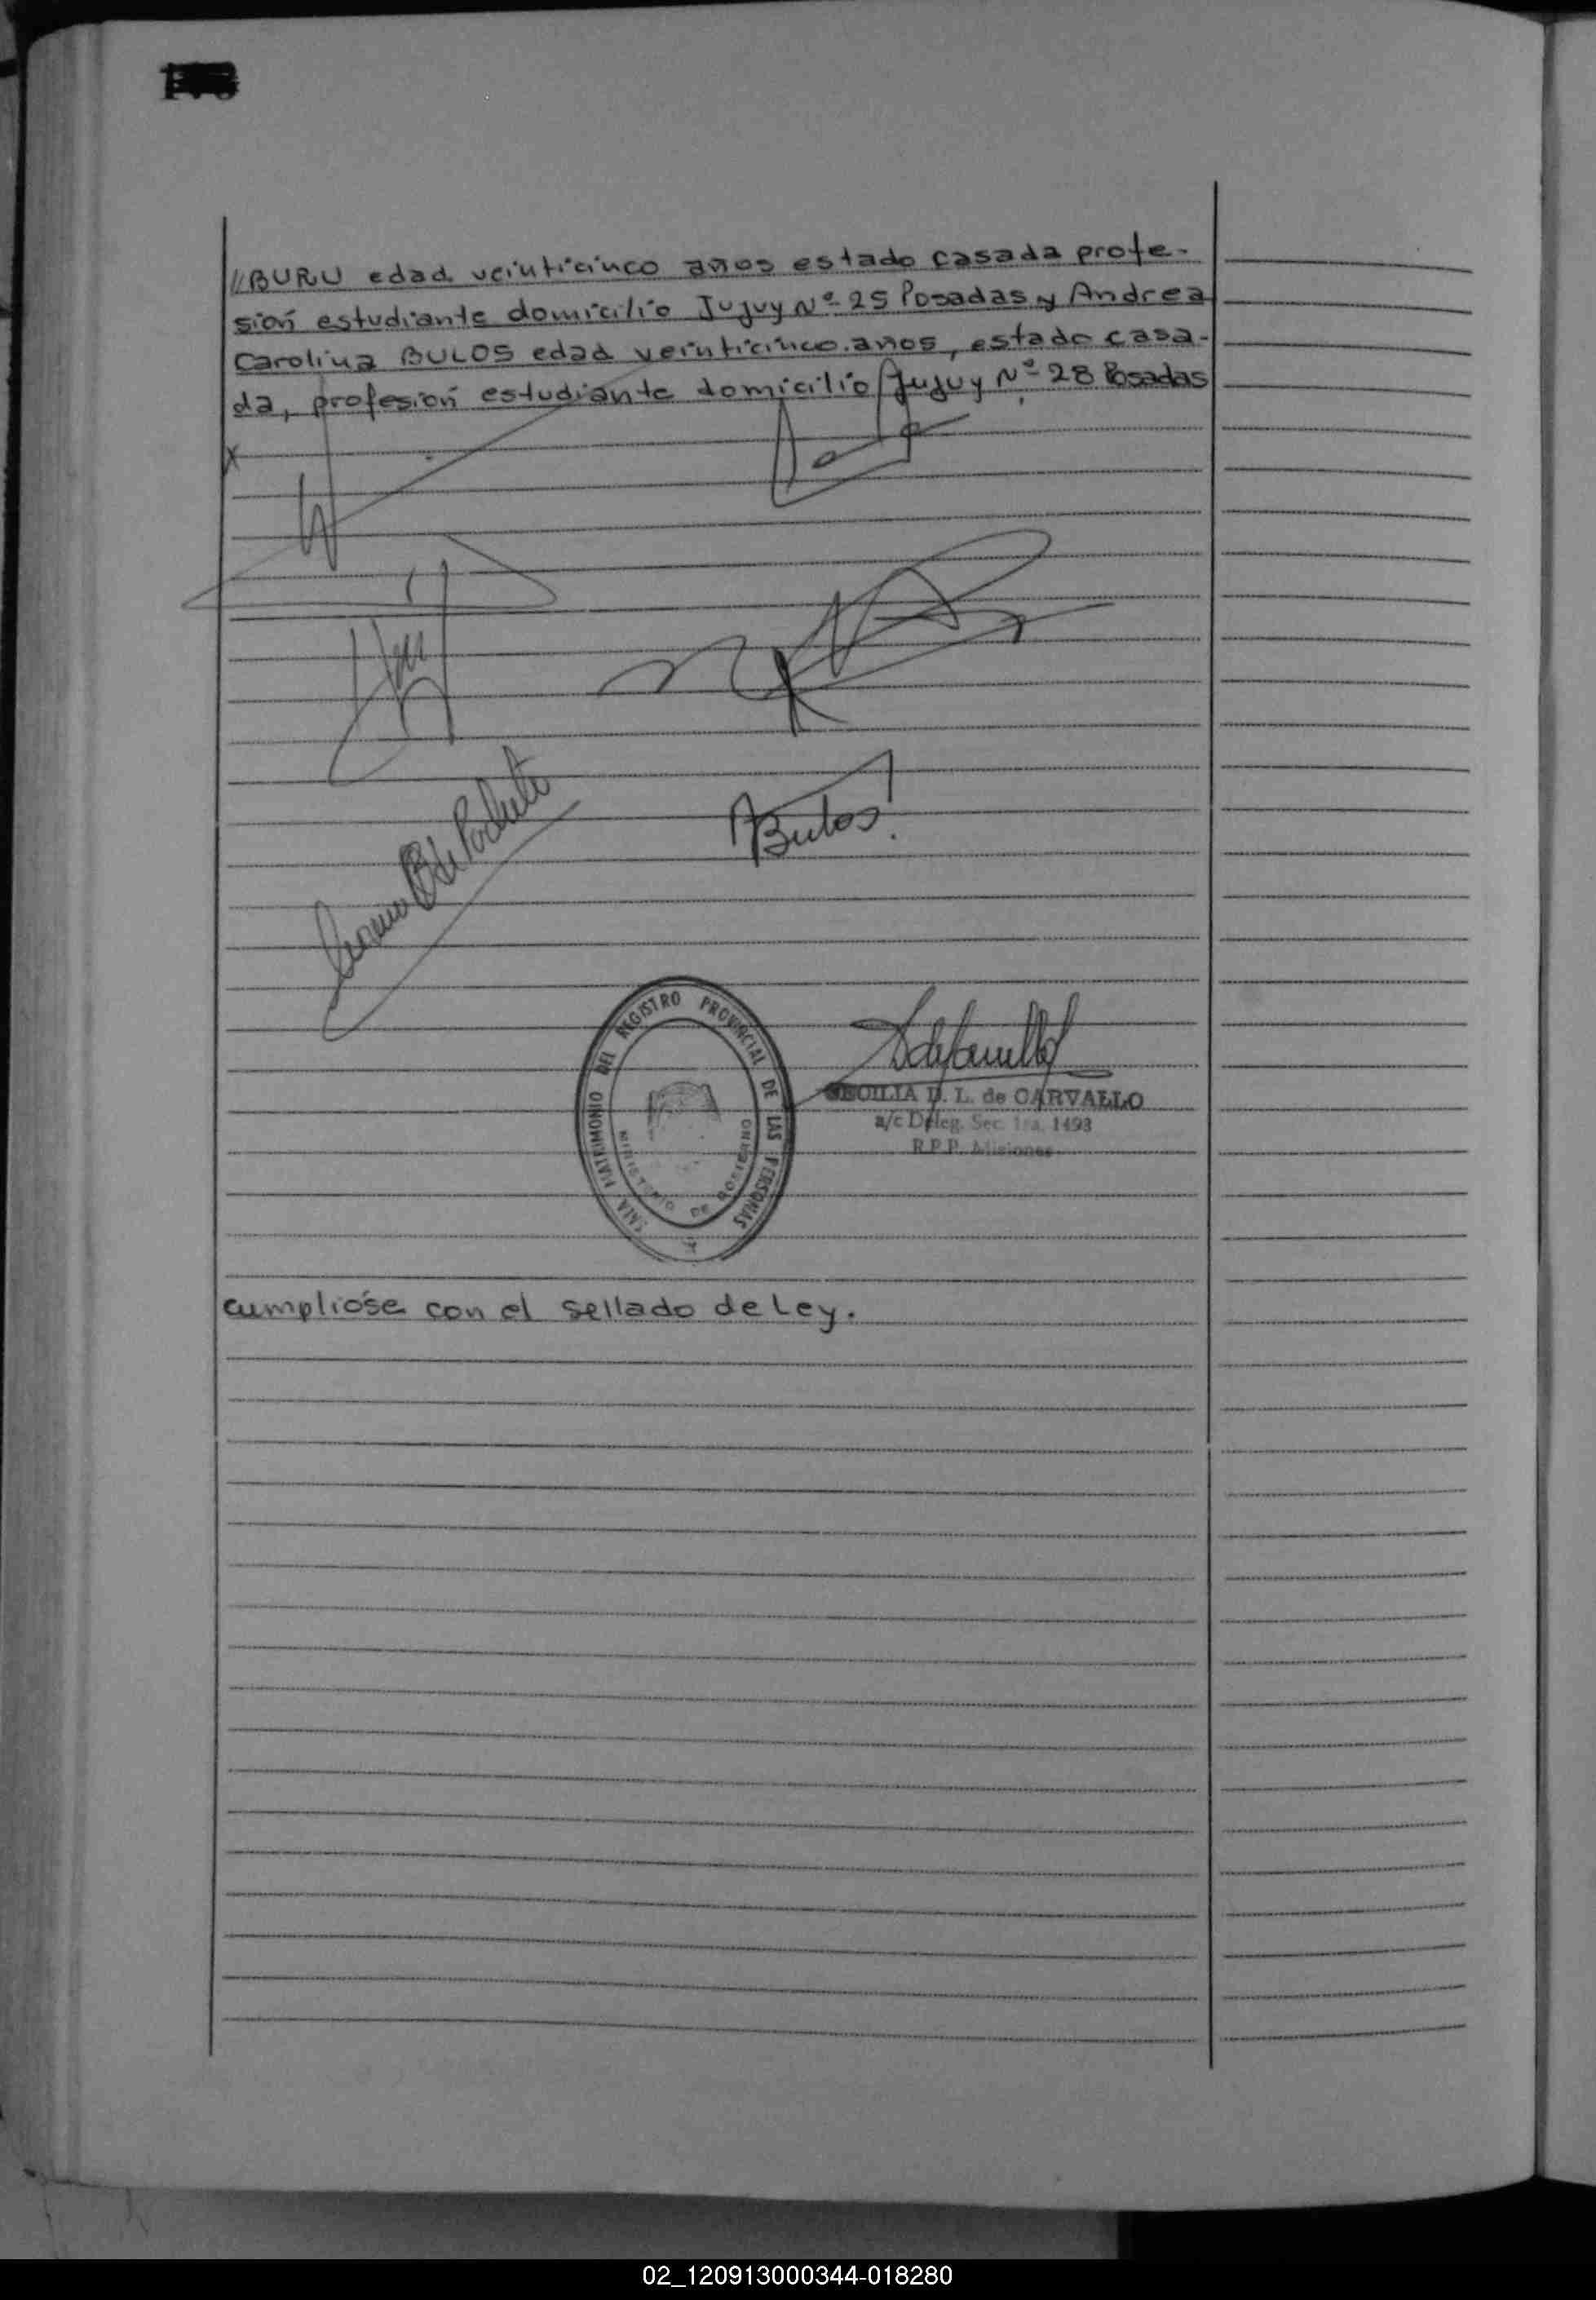 //BURU edad veinticinco años estado casada profe-
sión estudiante domicilio Jujuy Nº 25 Posadas y Andrea
Carolina BULOS edad veinticinco años, estado casa-
da, profesión estudiante domicilio Jujuy Nº 28 Posadas
x
ABulos
SALA MATRIMONIO DEL REGISTRO PROVINCIAL DE LAS PERSONAS
MINISTERIO DE GOBIERNO
CECILIA D. L. de CARVALLO
a/c Deleg. Sec. 1ra. 1493
R.P.P. Misiones
cumpliose con el sellado de Ley.
02_120913000344-018280